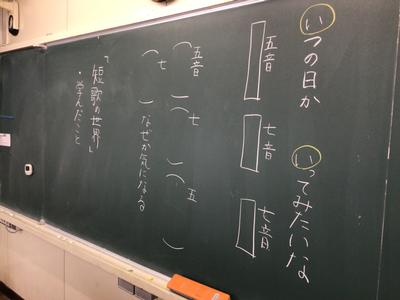 いつの日か いってみたいな
五音 七音 七音
五音 七 五
七 なぜか気になる
「短歌の世界」
・学んだこと